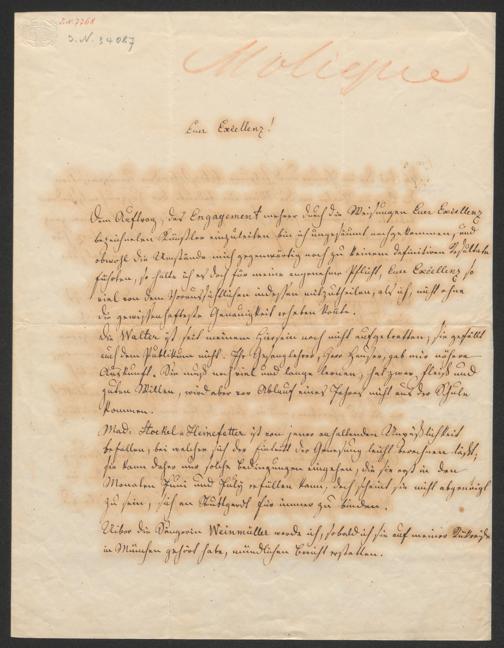 I.N. 7768
I.N. 34087
Molique
Euer Excellenz!
Dem Auftrag, das Engagement mehrer durch die Weisungen Euer Excellenz
bezeichneten Künstler einzuleiten bin ich ungesäumt nachgekommen, und
obwohl die Umstände mich gegenwärtig noch zu keinem definitiven Resultate
führten, so halte ich es doch für meine angenehme Pflicht, Euer Excellenz so
viel von dem indessen mitzutheilen, als ich, nicht ohne
die gewissenhafteste Genauigkeit erheben konte.
Die Walter ist seit meinem Hiersein noch nicht aufgetretten, sie gefällt
auch dem Publikum nicht. Ihr Gesanglehrer, Herr Hauser, gab mir nähere
Auskunft. Sie muß noch viel und lange lernen, hat zwar Fleiß und
guten Willen, wird aber vor Ablauf eines Jahres nicht aus der Schule
kommen.
Mad. Stoekel-Heinefetter ist von jener Unpäßlichkeit
befallen, bei welcher sich der der Genesung leicht berechnen läßt;
sie kann daher nur solche Bedingungen eingehen, die sie erst in den
Monaten Juni und July erfüllen kann, doch scheint sie nicht abgeneigt
zu sein, sich an Stuttgardt für immer zu binden.
Ueber die Sängerin Weinmüller werde ich, sobald ich sie auf meiner Rückreise
in München gehört habe, mündlichen Bericht erstatten.